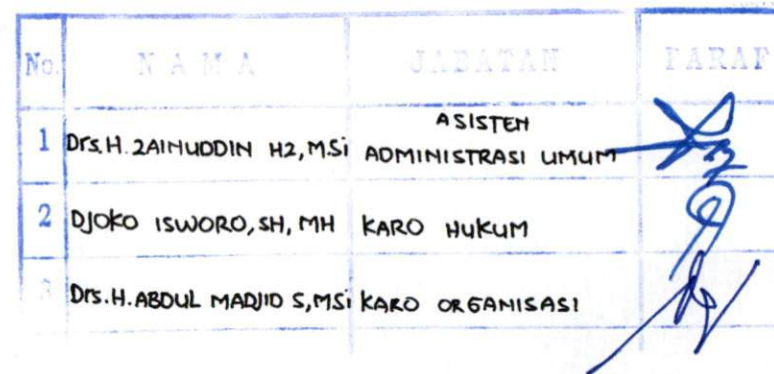 No. NAMA JABATAN PARAF
1 Drs.H. ZAINUDDIN HZ, M.Si ASISTEN
ADMINISTRASI UMUM
2 DJOKO ISWORO, SH, MH KARO HUKUM
3 Drs.H. ABDUL MADJID S, MSi KARO ORGANISASI